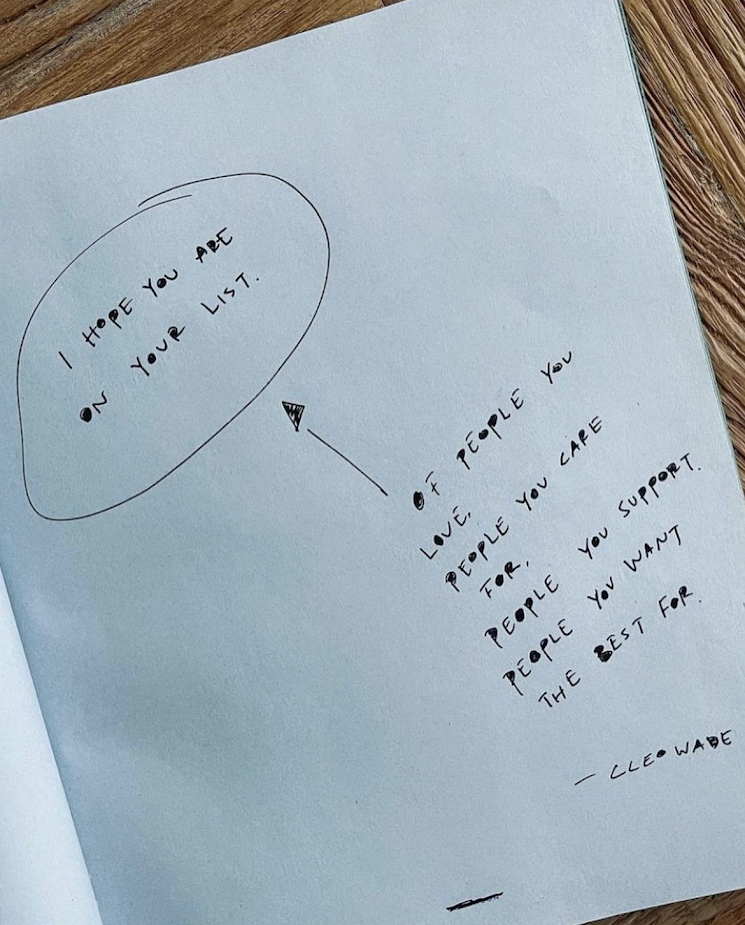 I HOPE YOU ARE
ON YOUR LIST.
OF PEOPLE YOU
LOVE,
PEOPLE YOU CARE
FOR,
PEOPLE YOU SUPPORT.
PEOPLE YOU WANT
THE BEST FOR.
— CLEO WADE